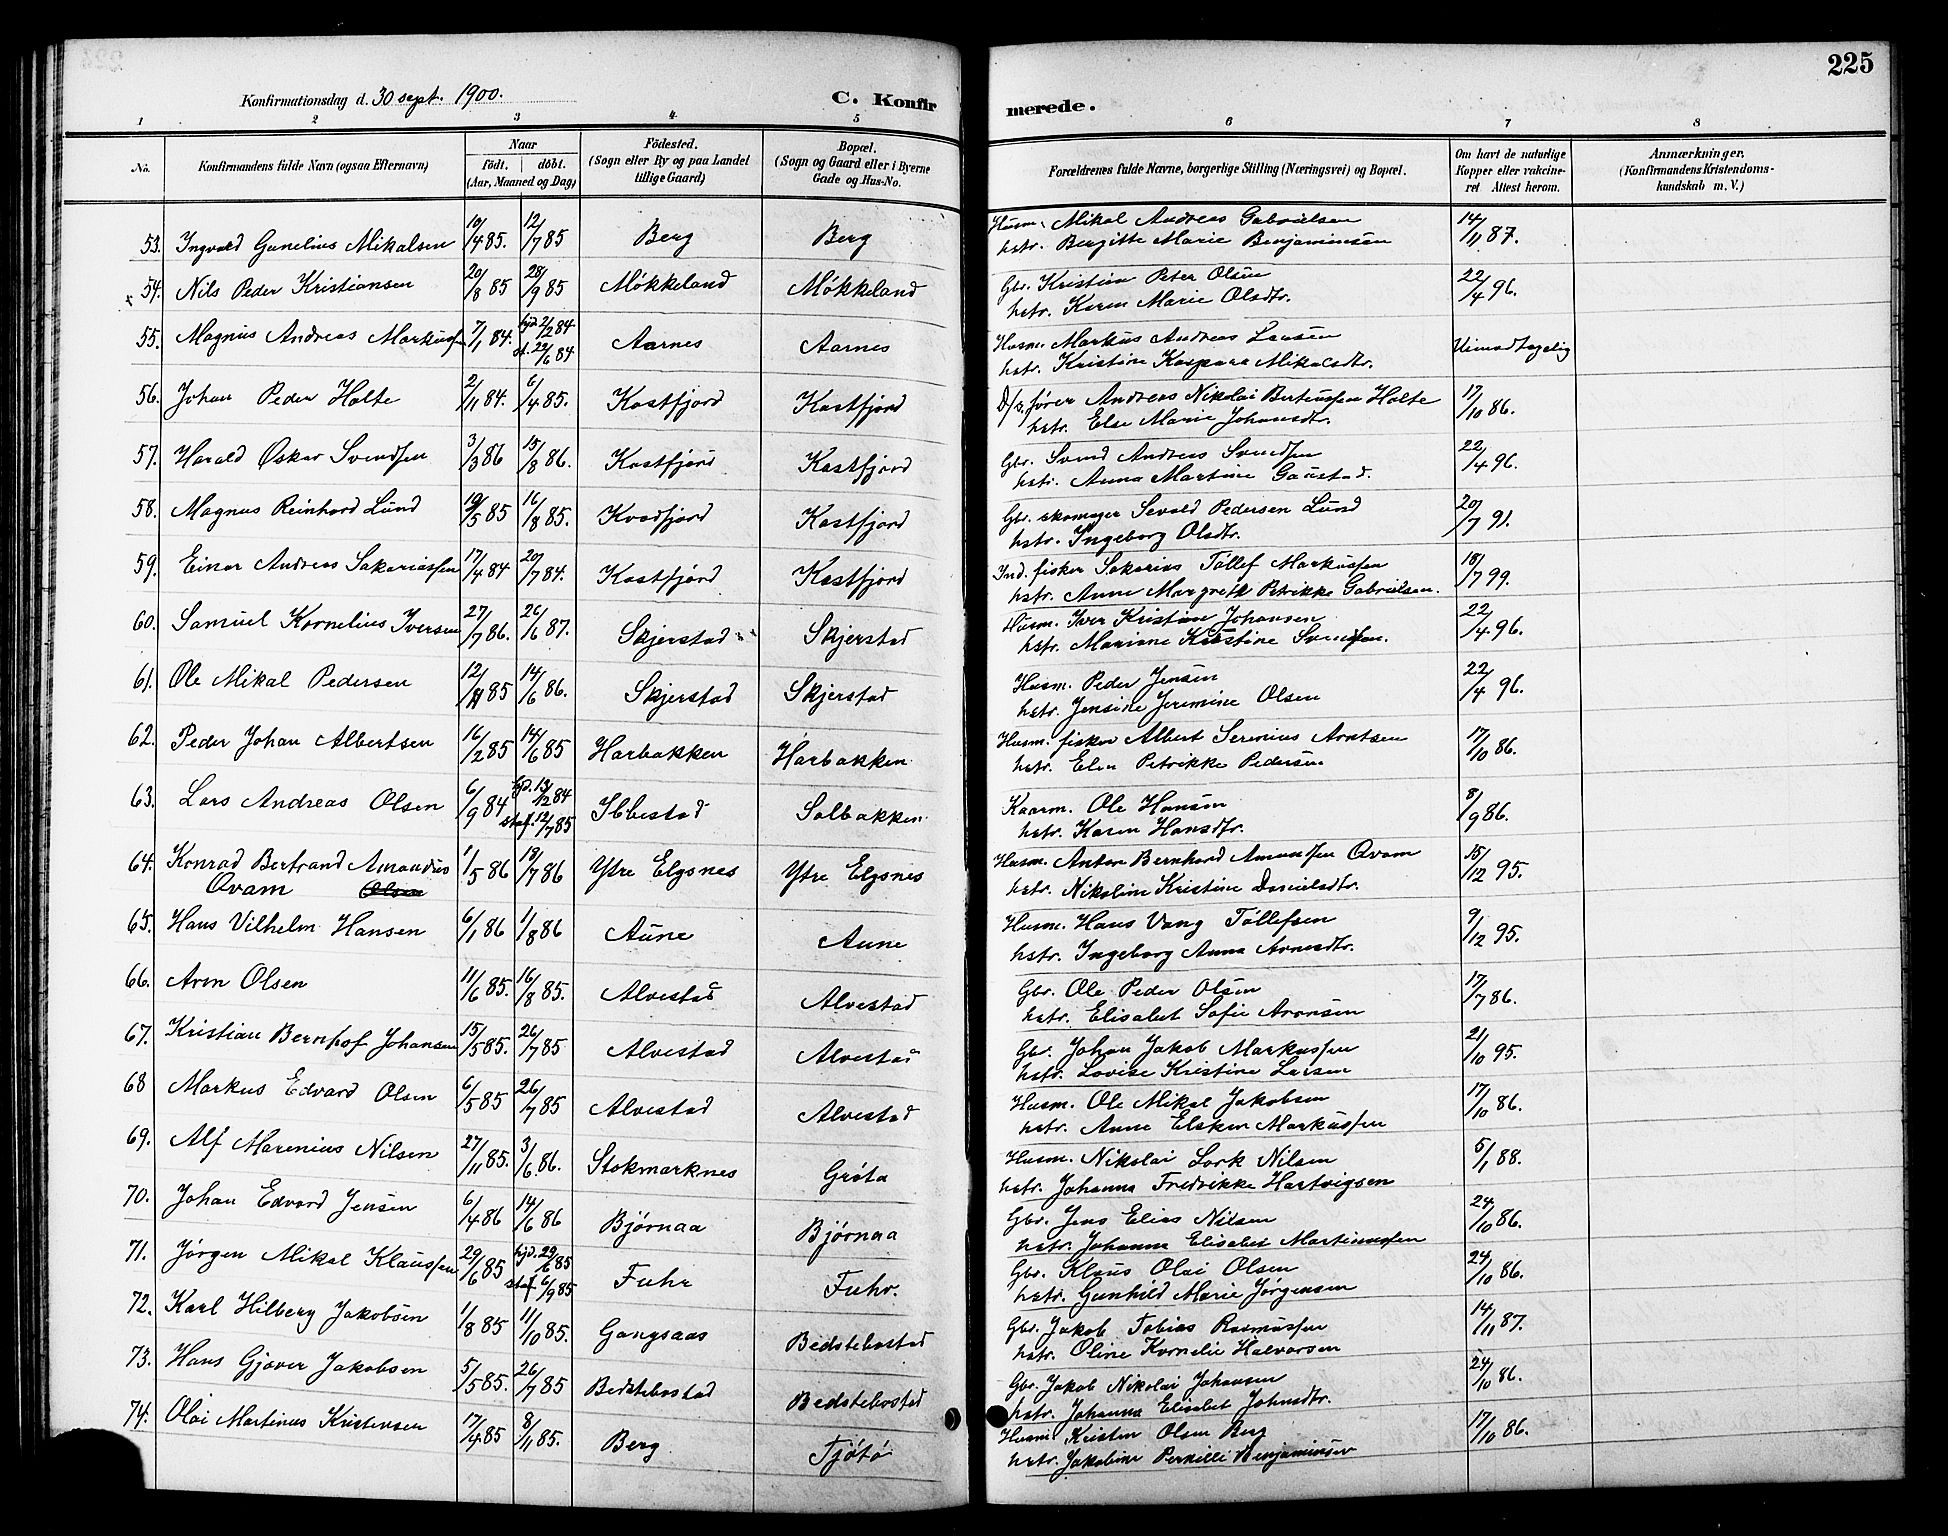 225
Konfirmationsdag d. 30 sept. 1900.
C. Konfirmerede.
1 2 3 4 5 6 7 8
No. | Konfirmandens fulde Navn (ogsaa Efternavn) | Naar födt. döbt. (Aar, Maaned og Dag) | Födested. (Sogn eller By og paa Landet tillige Gaard) | Bopæl. (Sogn og Gaard eller i Byerne Gade og Hus-No. | Forældrenes fulde Navne, borgerlige Stilling (Næringsvei) og Bopæl. | Om havt de naturlige Kopper eller vakcineret Attest herom. | Anmærkninger. (Konfirmandens Kristendomskundskab m. V.)
53. Ingvald Gunelius Mikalsen 10/4 85. 12/7 85 Berg Berg Husm. Mikal Andreas Gabrielsen 14/11 87.
hstr. Bergitte Marie Benjaminsen
x 54. Nils Peder Kristiansen 20/8 85 28/9 85 Møkkeland Møkkeland Gbr. Kristian Peter Olsen 22/4 96.
hstr. Karen Marie Olsdtr.
55. Magnus Andreas Markussen 7/1 84. hjd. 2/2 84 st. 22/6 84 Aarnes Aarnes Husm. Markus Andreas Larsen Uimodtagelig
hstr. Kristine Kaspara Mikalsdtr.
56. Johan Peder Holte 2/11 84. 6/4 85. Kastfjord Kastfjord D/s. fører Andreas Nikolai Berteussen Holte 17/10 86.
hstr. Else Marie Johansdtr.
57. Harald Oskar Svendsen 3/3 86 15/8 86. Kastfjord Kastfjord Gbr. Svend Andreas Svendsen 22/4 96.
hstr. Anna Martine Gaustad.
58. Magnus Reinhard Lund 19/5 85 16/8 85. Kvæfjord Kastfjord Gbr. skomager Sevald Pedersen Lund 20/7 91.
hstr. Ingeborg Olsdtr.
59. Einar Andreas Sakariassen 17/4 84 20/7 84. Kastfjord Kastfjord Ind. fisker Sakarias Tollef Markussen 18/7 99.
hstr. Anne Margreth Petrikke Gabrielsen.
60. Samuel Kornelius Iversen 27/7 86. 26/6 87. Skjerstad Skjerstad Husm. Iver Kristian Johansen 22/4 96.
hstr. Mariane Kristine Svendsen.
61. Ole Mikal Pedersen 12/11 85 14/6 86. Skjerstad Skjerstad Husm. Peder Jensen 22/4 96.
hstr. Jensine Jeremine Olsen
62. Peder Johan Albertsen 16/2 85 14/6 85 Harbakken Harbakken Husm. fisker Albert Serenius Arntsen 17/10 86.
hstr. Elen Petrikke Pedersen
63. Lars Andreas Olsen 6/9 84 hjd. 13/12 84 stf. 12/7 85 Ibbestad Solbakken Kaarm. Ole Hansen 8/9 86.
hstr. Karen Hansdtr.
64. Konrad Bertrand Amandus 1/5 86 18/7 86 Ytre Elgsnes Ytre Elgsnes Husm. Anton Bernhard Amundsen Qvam 15/12 95.
Qvam Olsen hstr. Nikoline Kristine Danielsdtr.
65. Hans Vilhelm Hansen 6/1 86 1/8 86 Aune Aune Husm. Hans Vang Tollefsen 9/12 95.
hstr. Ingeborg Anna Arnesdtr.
66. Aron Olsen 11/6 85. 16/8 85. Alvestad Alvestad Gbr. Ole Peder Olsen 17/7 86.
hstr. Elisabet Sofie Aronsen
67. Kristian Bernhof Johansen 15/5 85. 26/7 85 Alvestad Alvestad Gbr. Johan Jakob Markussen 21/10 95.
hstr. Lovise Kristine Larsen
68 Markus Edvard Olsen 6/5 85 26/7 85 Alvestad Alvestad Husm. Ole Mikal Jakobsen 17/10 86.
hstr. Anne Elsken Markussen
69. Alf Marenius Nilsen 27/11 85. 3/6 86. Stokmarknes Grøta Husm. Nikolai Lork Nilsen 5/1 88.
hstr. Johanna Fredrikke Hartvigsen
70. Johan Edvard Jensen 6/4 86 14/6 86 Bjørnaa Bjørnaa Gbr. Jens Elias Nilsen 24/10 86.
hstr. Johanna Elisabet Martinussen
71. Jørgen Mikal Klaussen 29/6 85 hjd. 29/6 85 staf 6/9 85 Fuhr Fuhr. Gbr. Klaus Olai Olsen 24/10 86.
hstr. Gunhild Marie Jørgensen
72. Karl Hilberg Jakobsen 1/8 85 11/10 85. Gangsaas Bedstebostad Gbr. Jakob Tobias Rasmussen 14/11 87.
hstr. Oline Kornelie Halvorsen
73. Hans Gjæver Jakobsen 5/5 85. 26/7 85 Bedstebostad Bedstebostad Gbr. Jakob Nikolai Johansen 24/10 86.
hstr. Johanna Elisabet Johnsdtr.
74. Olai Martinus Kristensen 17/4 85 8/11 85. Berg Tjøtø Husm. Kristen Olsen Berg 17/10 86.
hstr. Jakobine Pernille Benjaminsen